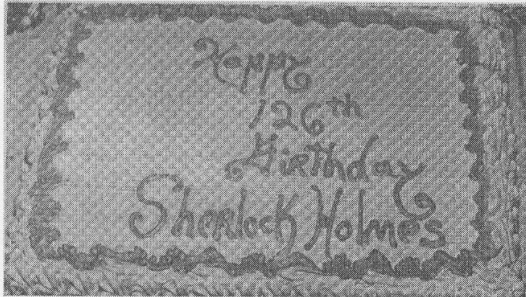 Happy
126th
Birthday
Sherlock Holmes